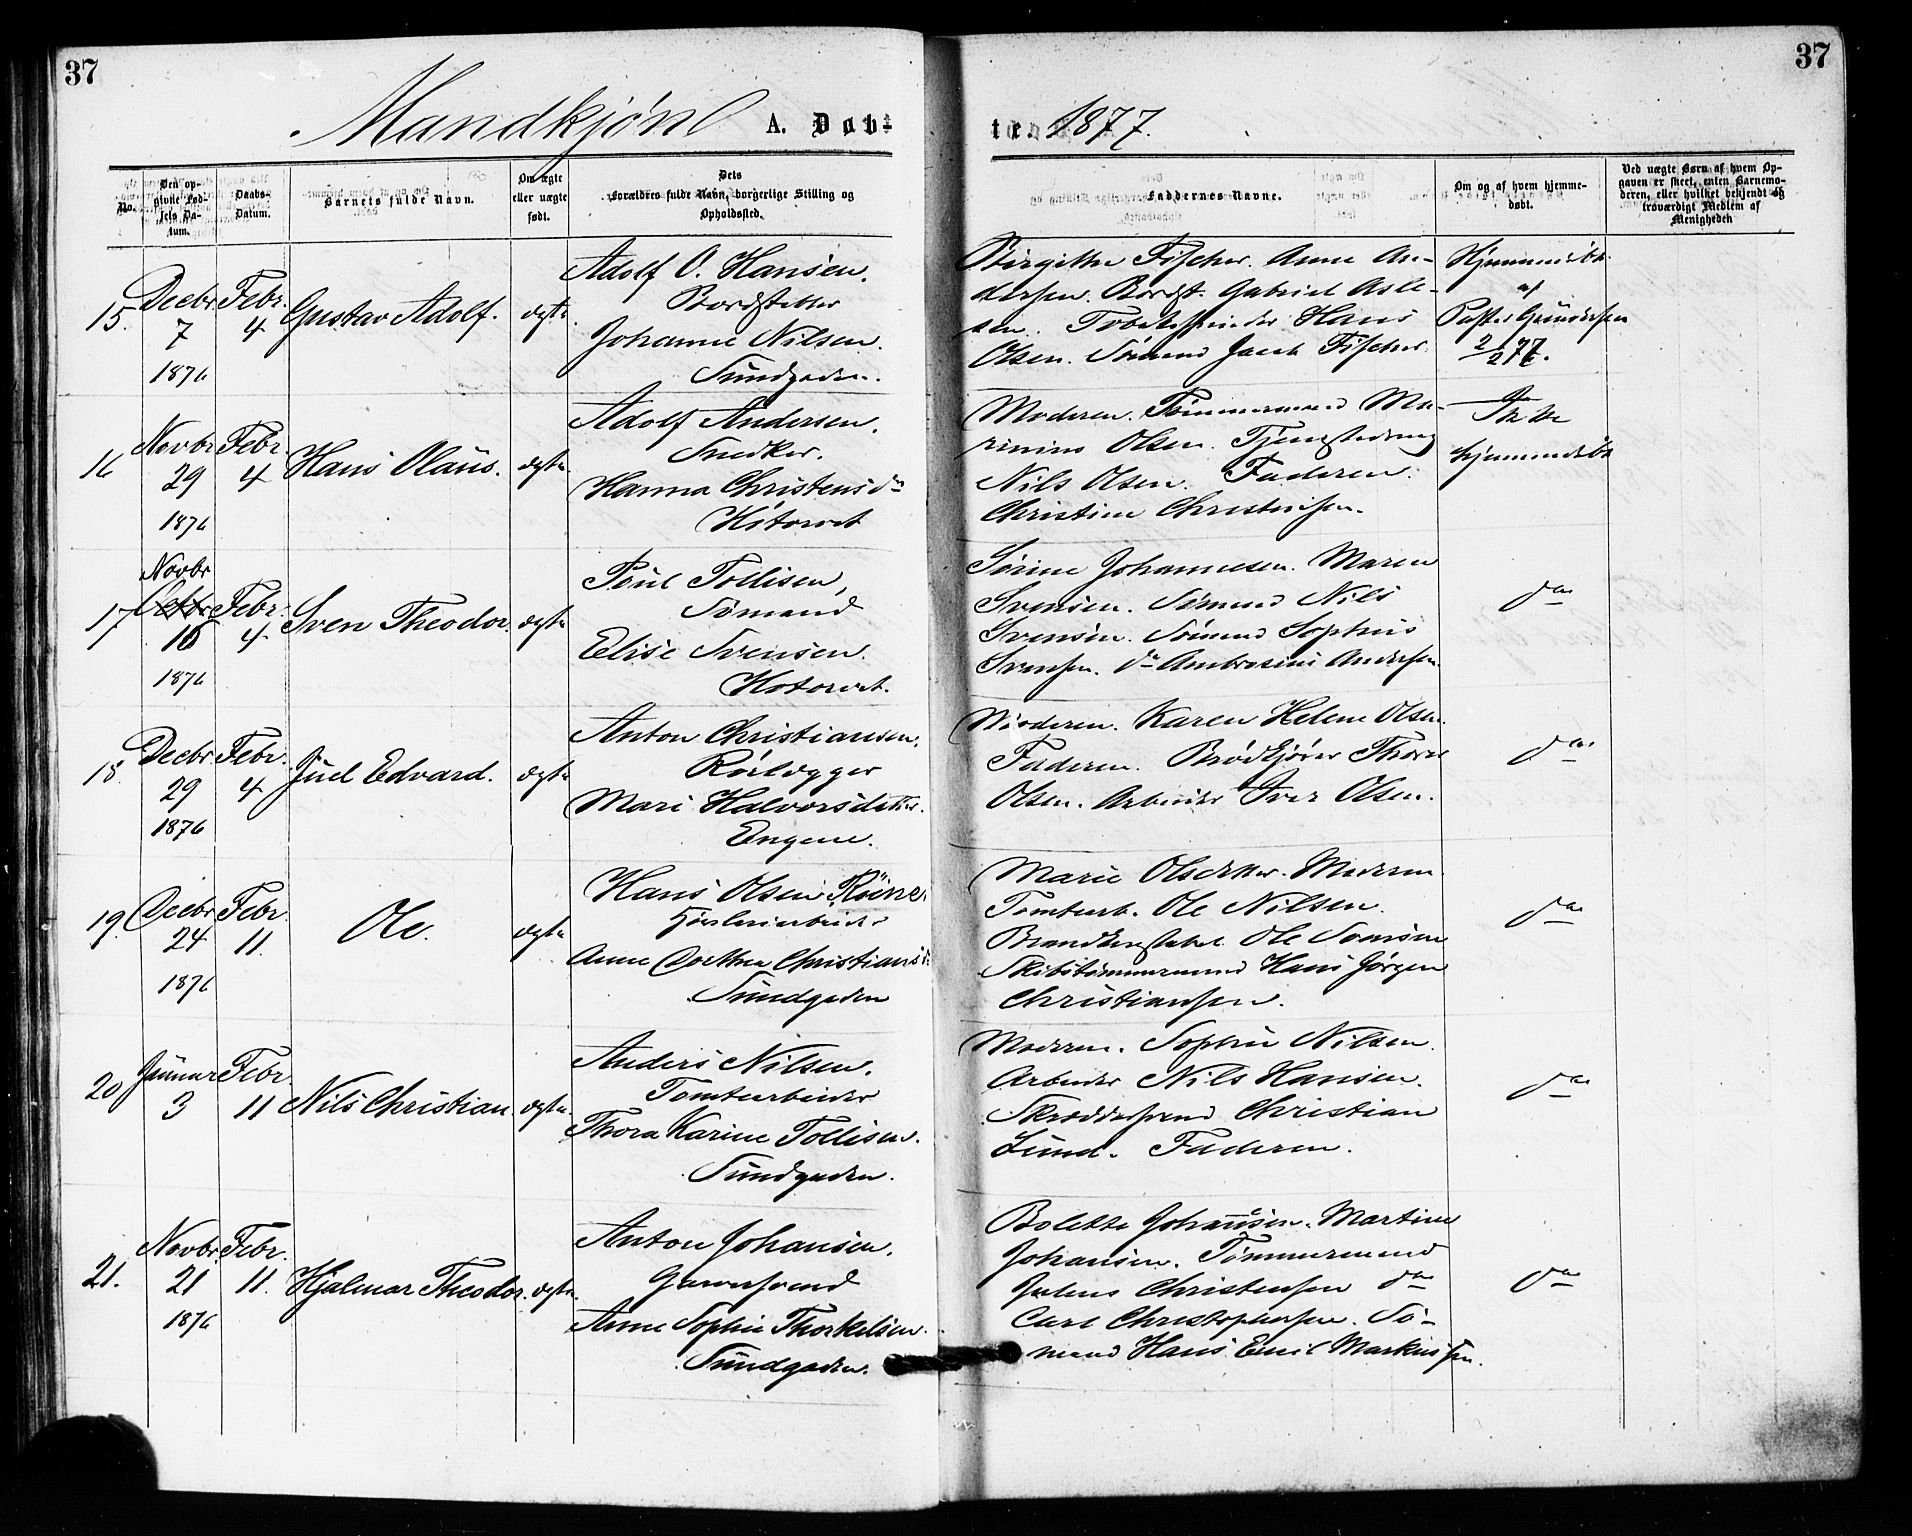 37
37
Mandkjøn A. Døb-
te. 1877.
No.
Den op-
givne Fød-
sels Da-
tum.
Daabs-
Datum.
Barnets fulde Navn.
Om ægte
eller uægte
født.
Dets
Forældres fulde Navn, borgerlige Stilling og
Opholdssted.
Faddernes Navne.
Om og af hvem hjemme-
døbt.
Ved uægte Børn af hvem Op-
gaven er skeet, enten Barnemo-
deren, eller hvilket bekjendt og
troværdigt Medlem af
Menigheden
15.
Decbr
7
1876
Febr.
4
Gustav Adolf.
ægte.
Adolf O. Hansen.
Johanne Nilsen.
Sundgaden.
Birgithe Fischer. Anne An-
dersen. Gabriel Asle-
sen. Hans
Olsen. Sømand Jacob Fischer.
Hjemmedøbt
af
Pastor Gundersen
2/2 77.
16
Novbr
29
1876
Febr.
4
Hans Olaus.
ægte
Adolf Andersen.
Snedker.
Hanna Christensdr
Høtorvet
Moderen. Tømmermand Ma-
rinius Olsen.
Nils Olsen. Faderen.
Christine Christensen.
Ikke
hjemmedøbt
17
Novbr
Octbr
16
1876
Febr.
4
Sven Theodor.
ægte
Poul Tollisen,
Sømand
Elise Svensen.
Høtorvet.
Sørine Johannesen. Maren
Svensen. Sømand Nils
Svensen. Sømand Sophus
Svensen. do Ambrosius Andersen.
do
18.
Decbr
29
1876
Febr.
4
Juel Edvard.
ægte
Anton Christiansen.
Rørlægger
Mari Halvorsdatter.
Engene.
Moderen. Karen Helene Olsen.
Faderen. Brødkjører Thorer
Olsen. Arbeider Iver Olsen.
do
19.
Decbr
24
1876
Febr.
11.
Ole.
ægte
Hans Olsen Røine.
Anne Dorthea Christiansdr
Sundgaden
Marie Olsdtter. Moderen.
Tomtearb. Ole Nilsen.
Brandkonstabel Ole
Skibstømmermand Hans Jørgen
Christiansen.
do
20.
Januar
3
Febr.
11
Nils Christian.
ægte
Anders Nilsen.
Tomtearbeider
Thora Karine Tollisen.
Sundgaden.
Moderen. Sophie Nilsen.
Arbeider Nils Hansen.
Skræddersvend Christian
Lund. Faderen.
do
21.
Novbr.
21
1876
Febr.
11.
Hjalmar Theodor.
ægte.
Anton Johansen.
Garversvend
Anne Sophie Thorkelsen.
Sundgaden.
Bolette Johansen. Martine
Johansen. Tømmermand
Julius Christensen do
Carl Christophersen. Sø-
mand Hans Emil Markussen.
do